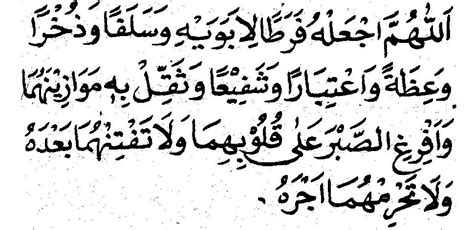 اَللّٰهُمَّ اجْعَلْهُ فَرَطًا لِاَبَوَيْهِ وَسَلَفًا وَذُخْرًا
وَعِظَةً وَاعْتِبَارًا وَشَفِيْعًا وَثَقِّلْ بِهِ مَوَازِيْنَهُمَا
وَاَفْرِغِ الصَّبْرَ عَلٰى قُلُوْبِهِمَا وَلَا تَفْتِنْهُمَا بَعْدَهُ
وَلَا تَحْرِمْهُمَا اَجْرَهُ .